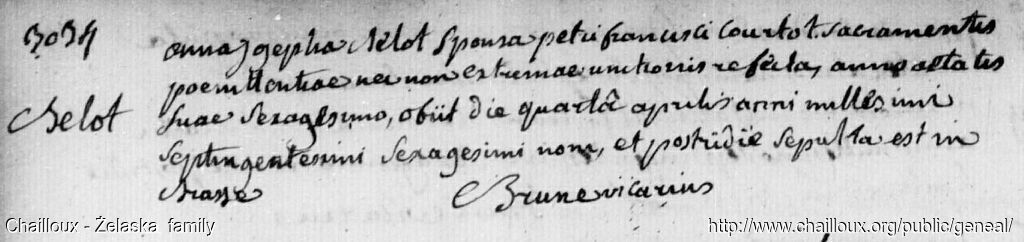 3034
anna Josepha Belot sponsa petri francisci Courtot. sacramentis
poenitentiae nec non extremae unctionis refecta, anno aetatis
Belot
suae sexagesimo, obiit die quartâ aprilis anni millesimi
septingentesimi sexagesimi noni, et postridie sepulta est in
Brune vicarius
Chailloux - Żelaska family
http://www.chailloux.org/public/geneal/